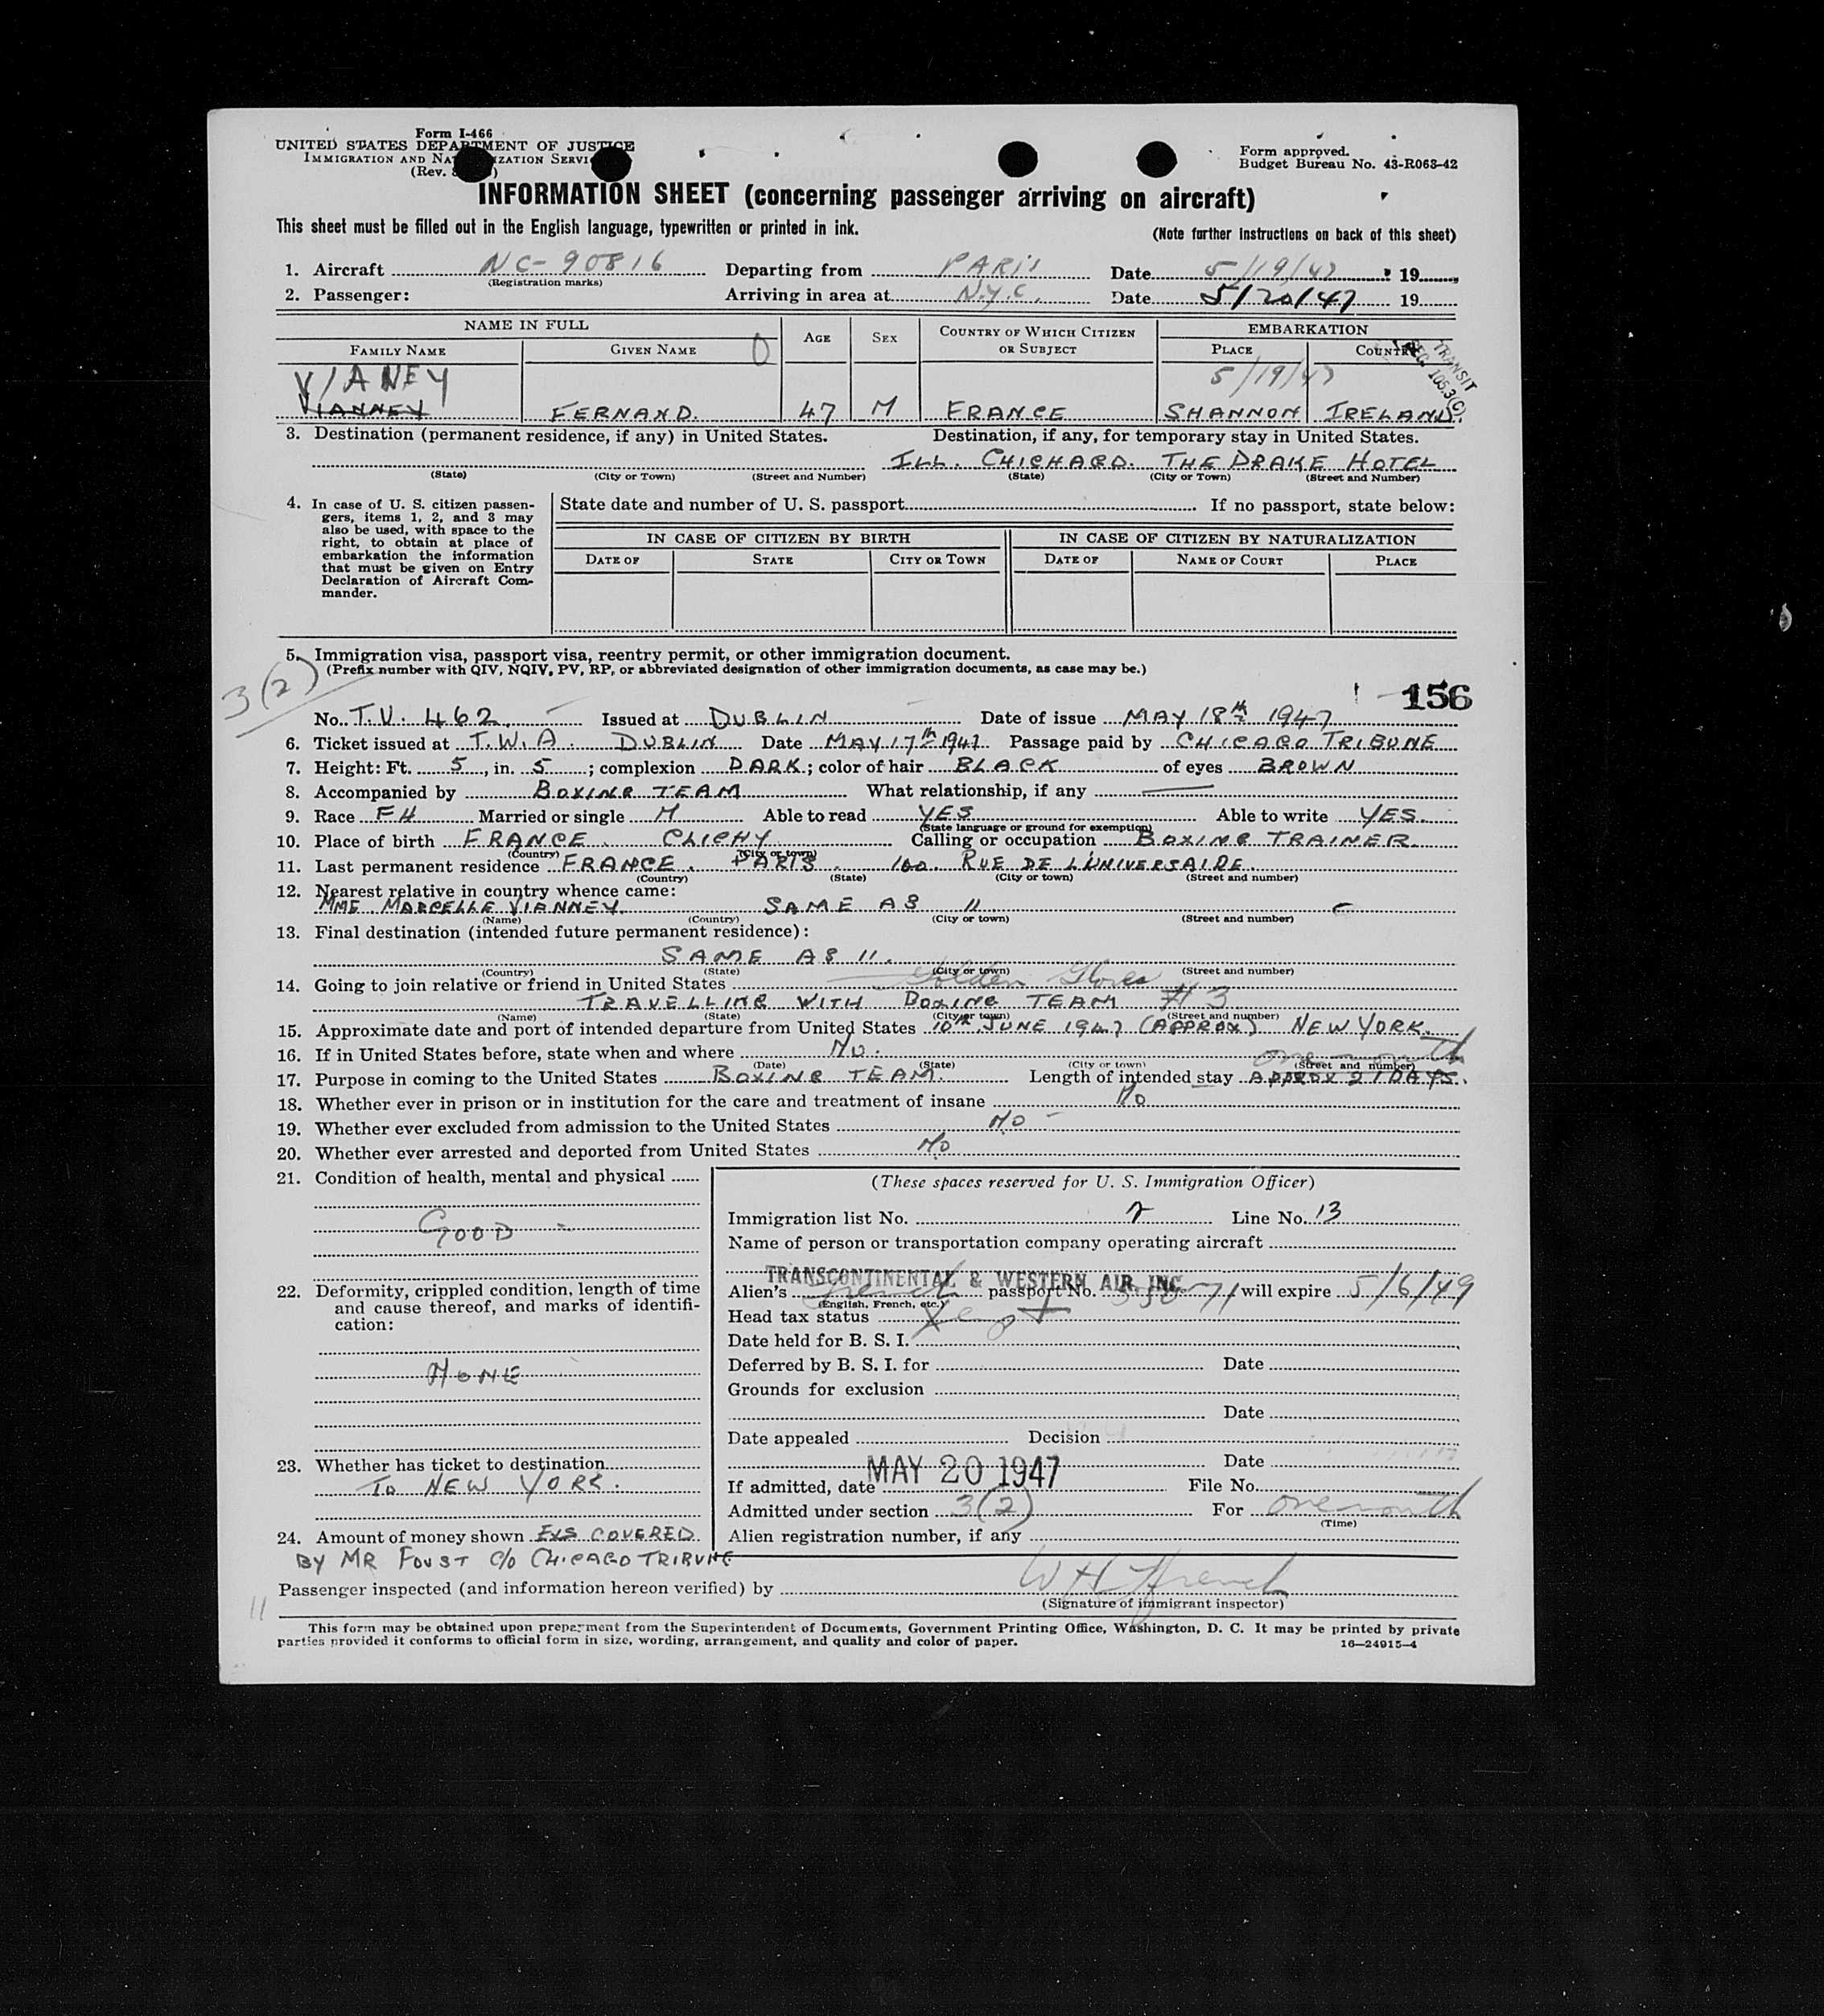 Form I-466
UNITED STATES DEPARTMENT OF JUSTICE
IMMIGRATION AND NA IZATION SERVI
(Rev. )
Form approved.
Budget Bureau No. 43-R063-42
INFORMATION SHEET (concerning passenger arriving on aircraft)
This sheet must be filled out in the English language, typewritten or printed in ink.
(Note further instructions on back of this sheet)
1. Aircraft NC-90816 Departing from PARIS Date 5/19/47 19
(Registration marks)
2. Passenger: Arriving in area at N.Y.C. Date 5/20/47 19
NAME IN FULL AGE SEX COUNTRY OF WHICH CITIZEN OR SUBJECT EMBARKATION
FAMILY NAME GIVEN NAME PLACE COUNTRY
TRANSIT
105.3(C)
VIANEY 5/19/47
VIANNEY FERNAND. 47 M FRANCE SHANNON IRELAND
3. Destination (permanent residence, if any) in United States. Destination, if any, for temporary stay in United States.
ILL. CHICHAGO. THE DRAKE HOTEL
(State) (City or Town) (Street and Number) (State) (City or Town) (Street and Number)
4. In case of U. S. citizen passengers, items 1, 2, and 3 may also be used, with space to the right, to obtain at place of embarkation the information that must be given on Entry Declaration of Aircraft Commander.
State date and number of U. S. passport If no passport, state below:
IN CASE OF CITIZEN BY BIRTH IN CASE OF CITIZEN BY NATURALIZATION
DATE OF STATE CITY OR TOWN DATE OF NAME OF COURT PLACE
5. Immigration visa, passport visa, reentry permit, or other immigration document.
(Prefix number with QIV, NQIV, PV, RP, or abbreviated designation of other immigration documents, as case may be.)
3(2)
156
No. T.V. 462. Issued at DUBLIN Date of issue MAY 18th 1947
6. Ticket issued at T.W.A. DUBLIN Date MAY 17th 1947. Passage paid by CHICAGO TRIBUNE
7. Height: Ft. 5, in. 5; complexion DARK; color of hair BLACK of eyes BROWN
8. Accompanied by BOXING TEAM What relationship, if any —
9. Race FH Married or single M Able to read YES Able to write YES.
(State language or ground for exemption)
10. Place of birth FRANCE. CLICHY Calling or occupation BOXING TRAINER.
(Country) (City or town)
11. Last permanent residence FRANCE. PARIS. 100. RUE DE L'UNIVERSAIRE.
(Country) (State) (City or town) (Street and number)
12. Nearest relative in country whence came:
MME. MARCELLE VIANNEY. SAME AS 11
(Name) (Country) (City or town) (Street and number)
13. Final destination (intended future permanent residence):
SAME AS 11.
(Country) (State) (City or town) (Street and number)
14. Going to join relative or friend in United States Golden Gloves
TRAVELLING WITH BOXING TEAM #3
(Name) (State) (City or town) (Street and number)
15. Approximate date and port of intended departure from United States 10th JUNE 1947 (APPROX) NEW YORK.
16. If in United States before, state when and where NO. one month
(Date) (State) (City or town) (Street and number)
17. Purpose in coming to the United States BOXING TEAM. Length of intended stay APPROX 21 DAYS.
18. Whether ever in prison or in institution for the care and treatment of insane NO
19. Whether ever excluded from admission to the United States NO -
20. Whether ever arrested and deported from United States NO
21. Condition of health, mental and physical
GOOD -
22. Deformity, crippled condition, length of time and cause thereof, and marks of identification:
NONE
23. Whether has ticket to destination
TO NEW YORK.
24. Amount of money shown EXS COVERED
BY MR FOUST C/O CHICAGO TRIBUNE
(These spaces reserved for U. S. Immigration Officer)
Immigration list No. Line No. 13
Name of person or transportation company operating aircraft
TRANSCONTINENTAL & WESTERN AIR, INC.
Alien's French passport No. will expire 5/6/49
(English, French, etc.)
Head tax status
Date held for B. S. I.
Deferred by B. S. I. for Date
Grounds for exclusion
Date
Date appealed Decision
Date
If admitted, date MAY 20 1947 File No.
Admitted under section 3(2) For one month
(Time)
Alien registration number, if any
Passenger inspected (and information hereon verified) by
(Signature of immigrant inspector)
11
This form may be obtained upon prepayment from the Superintendent of Documents, Government Printing Office, Washington, D. C. It may be printed by private
parties provided it conforms to official form in size, wording, arrangement, and quality and color of paper. 16—24915-4